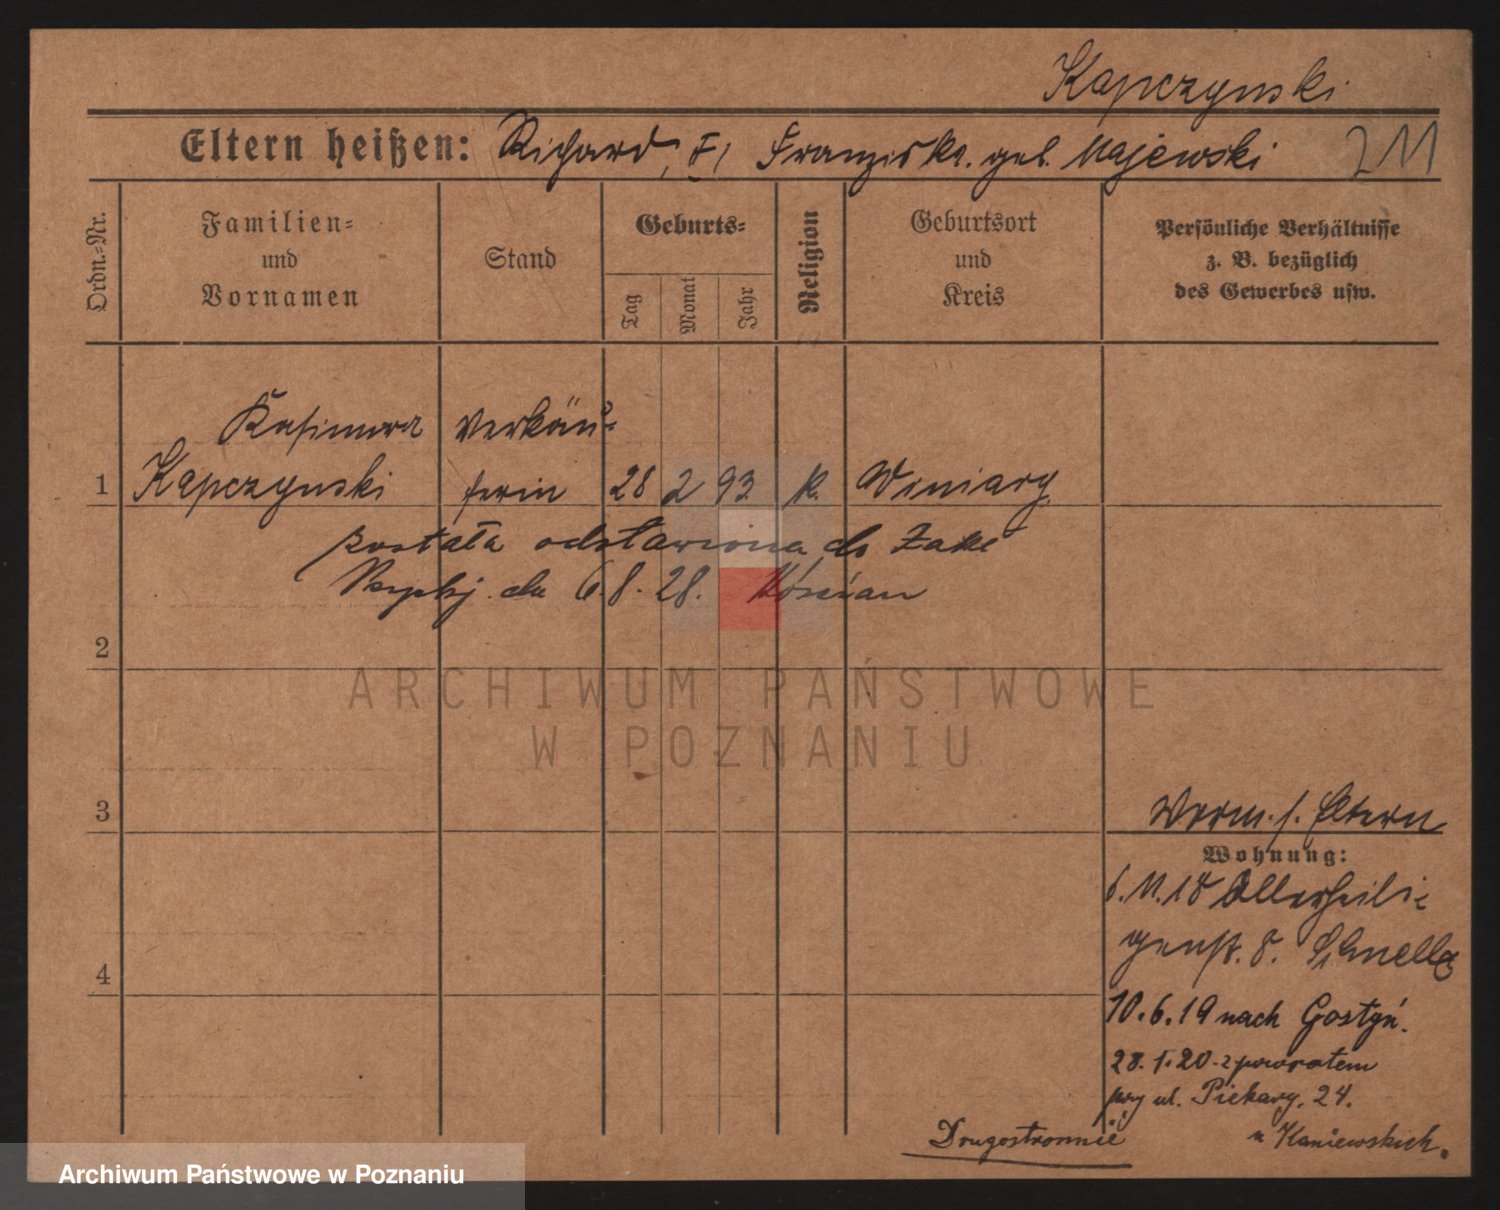 Kapczynski
Eltern heißen: Richard, Franziska geb. Majewski 211
Ordn.-Nr.
Familien- und Vornamen
Stand
Geburts-
Tag
Monat
Jahr
Religion
Geburtsort und Kreis
Persönliche Verhältnisse z. B. bezüglich des Gewerbes usw.
Kasimira Verkäu-
1 Kapczynski ferin 28 2 93. k. Winiary
została odstawiona do Zakł
Psychj. dn 6.8.28. Kościan
2
ARCHIWUM PAŃSTWOWE
W POZNANIU
3
Worm. s. Eltern
Wohnung:
6.11.18 Allerheili-
genst. 8. Schnella
4
10.6.19 nach Gostyń.
28.1.20 z powrotem
przy ul. Piekary. 24.
Drugostronnie
u Kaniewskich.
Archiwum Państwowe w Poznaniu